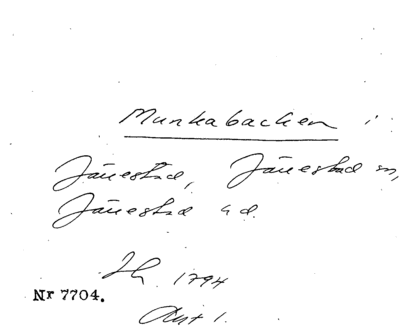 Munkabacken i
Järrestad, Järrestad sn,
Järrestad hd.
Lh. 1794
Nr 7704.
Akt 1.